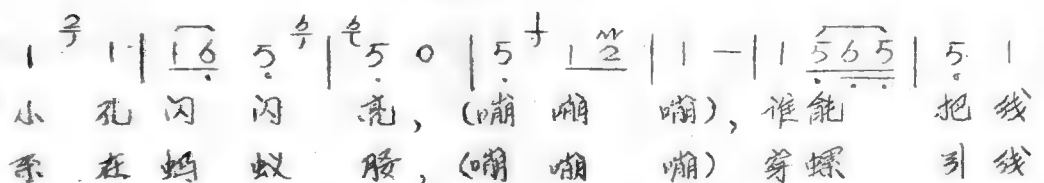 1 1 | 1 6 5 | 5 0 | 5 1 2 | 1 — | 1 5 6 5 | 5 1
小孔闪闪亮,(嘣嘣嘣),谁能把线
系在蚂蚁腰,(嘣嘣嘣)穿螺引线